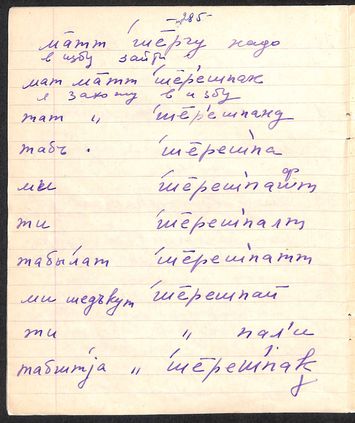 -285-
ма̄тт 'ше̄ргу надо
в избу зайти
мат ма̄тт 'ше̄решпак
я захожу в избу
тат " 'ше̄решпанд
табъ . 'ше̄решпа
мы 'ше̄решпафт
ты 'ше̄решпалт
табы́лат 'ше̄решпатт
ми шедъкут 'ше̄решпай
ти " пал'и
табиштја " 'ше̄решпаķ